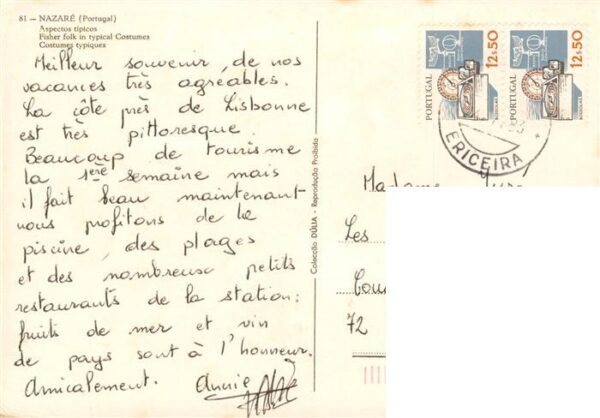 81 – NAZARÉ (Portugal)
Aspectos típicos
Fisher folk in typical Costumes
Costumes typiques
Meilleur souvenir de nos
vacances très agréables.
La côte près de Lisbonne
est très pittoresque.
Beaucoup de tourisme
la 1ère semaine mais
il fait beau maintenant
nous profitons de la
piscine, des plages
et des nombreux petits
restaurants de la station:
fruits de mer et vin
de pays sont à l'honneur.
Amicalement. Annie
Colecção DÚLIA - Reprodução Proibida
PORTUGAL 12$50
PORTUGAL 12$50
ERICEIRA
Madame
Les
72